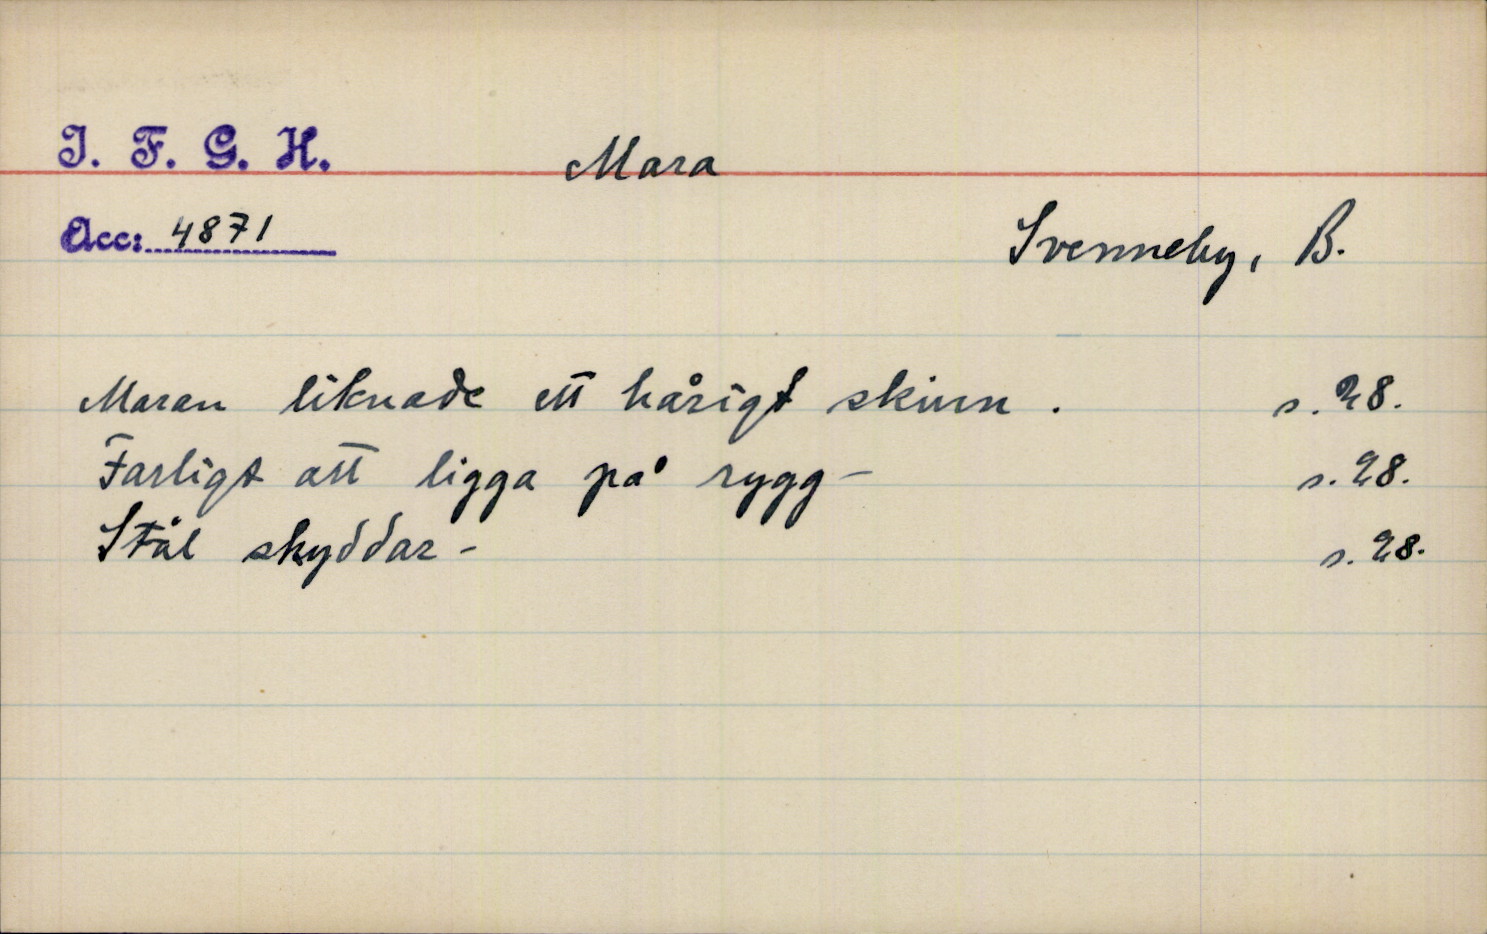 I. F. G. H.
Mara
Acc: 4871
Svenneby, B.
Maran liknade ett hårigt skinn . s. 28.
Farligt att ligga på rygg – s. 28.
Stål skyddar – s. 28.